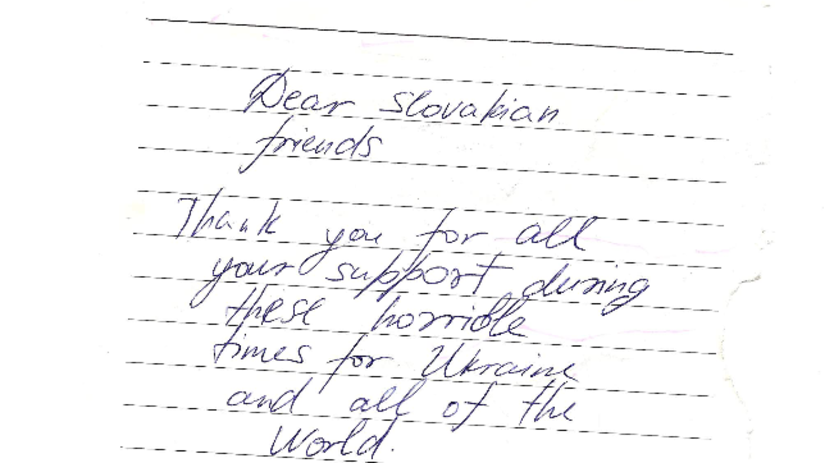 Dear Slovakian
friends
Thank you for all
your support during
these horrible
times for Ukraine
and all of the
World.